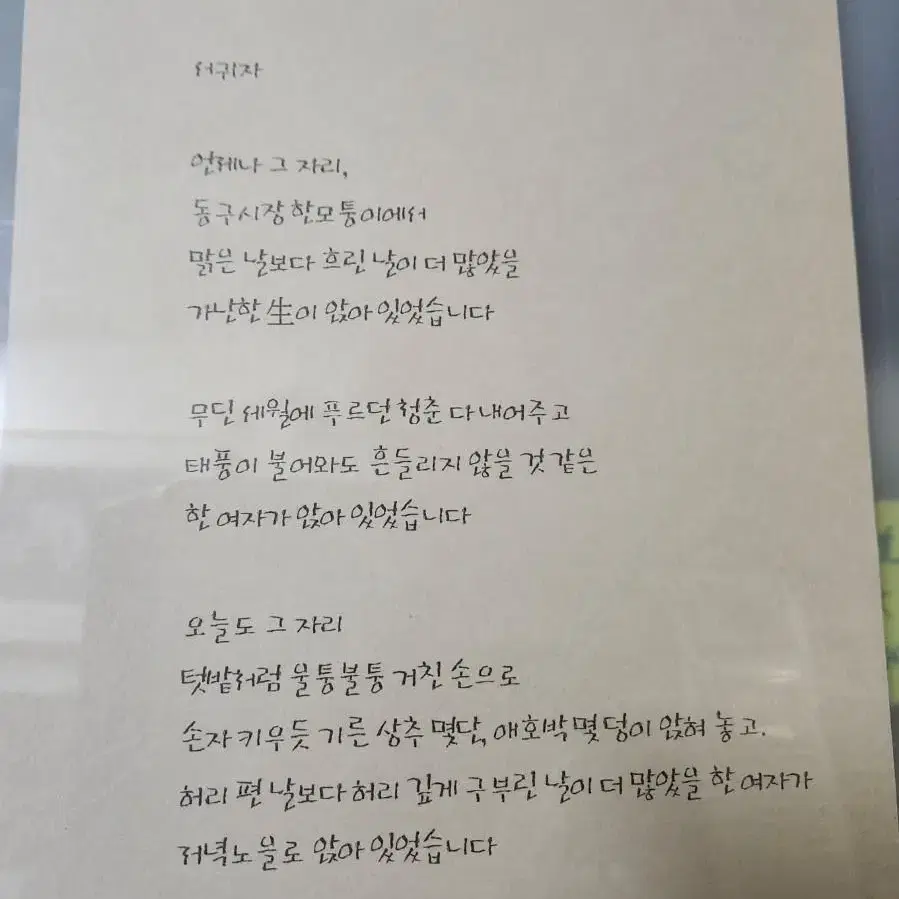 서귀자
언제나 그 자리,
동구시장 한모퉁이에서
맑은 날보다 흐린 날이 더 많았을
가난한 生이 앉아 있었습니다
무딘 세월에 푸르던 청춘 다 내어주고
태풍이 불어와도 흔들리지 않을 것 같은
한 여자가 앉아 있었습니다
오늘도 그 자리
텃밭처럼 울퉁불퉁 거친 손으로
손자 키우듯 기른 상추 몇단, 애호박 몇 덩이 앉혀 놓고.
허리 편 날보다 허리 깊게 구부린 날이 더 많았을 한 여자가
저녁노을로 앉아 있었습니다